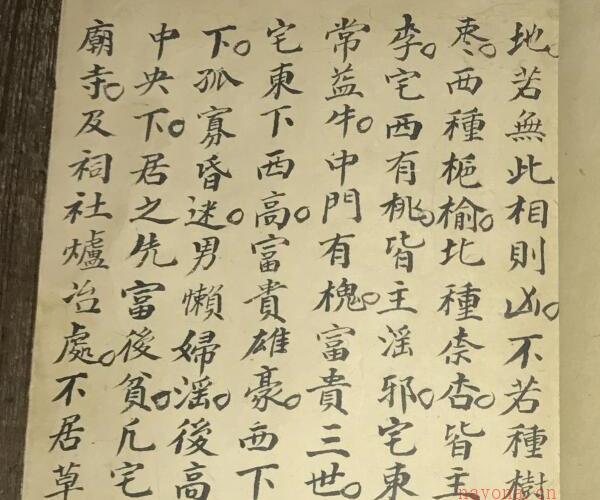 地。若無此相則凶。不若種樹
枣。西種梔榆。北種柰杏。皆主
李。宅西有桃。皆主滛邪。宅東
常益牛。中門有槐。富貴三世。
宅東下西高。富貴雄豪。西下
下。孤寡昏迷。男懶婦滛。後高
中央下。居之先富後貧。凡宅
廟寺。及祠社爐冶處。不居草